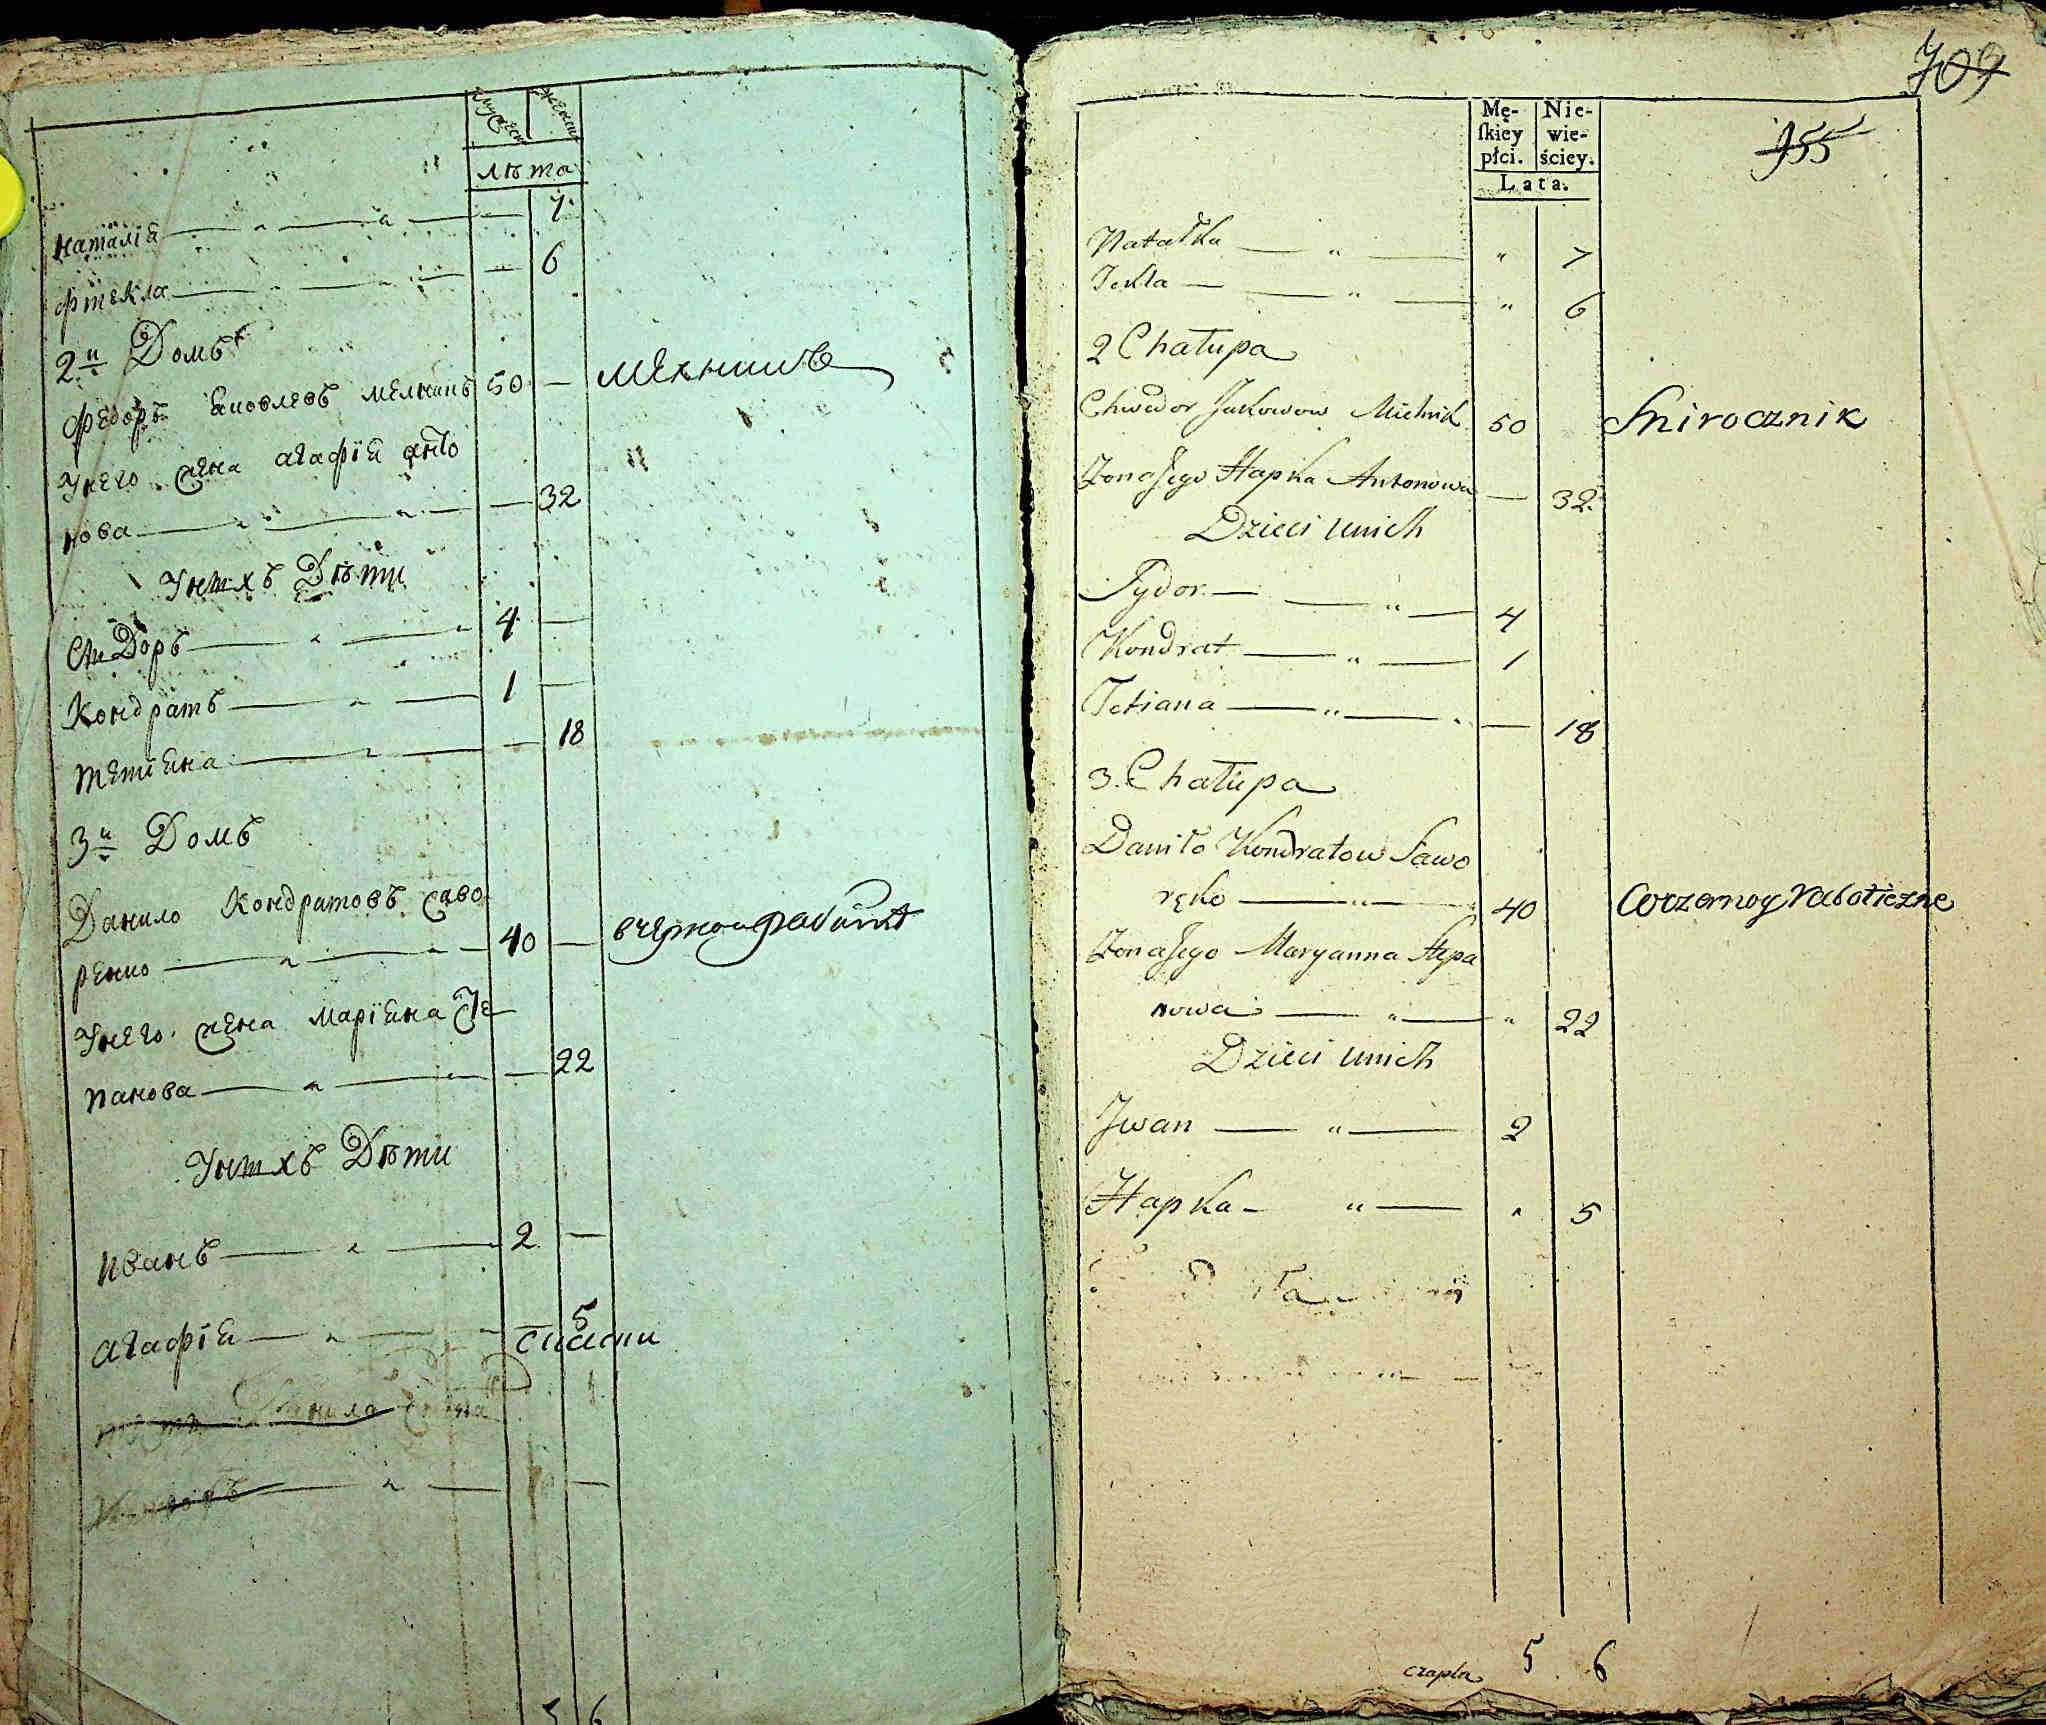 лѣта
Наталiя — „ — „ — — 7
Фтекла — „ — „ — — 6
2й Домъ
Федоръ Яковлевъ мелникъ 50 — мелникъ
Унего жена агафiя анто
нова — „ — „ — — 32
Унихъ Дѣти
Сидоръ — „ — „ 4 —
Кондратъ — „ — 1 —
Тетiяна — „ — — 18
3й Домъ
Данило Кондратовъ Саво
ренко — „ — „ — 40 —
Унего жена Марiяна Сте
панова — „ — „ — 22
Унихъ Дѣти
Иванъ — „ — 2 —
агафiя — „ — „ 5
5 6
709
955
Mę- Nie-
ſkiey wie-
płci. ściey.
Lata.
Natałka — „ — „ 7
Tekla — — „ — „ 6
2 Chałupa
Chwedor Jakowow Mielnik 50
Żona Jego Hapka Antonowa — 32
Dzieci unich
Sydor — — „ — 4
Kondrat — „ — 1
Tetiana — „ — „ — 18
3. Chałupa
Daniło Kondratow Sawo
ręko — „ — 40
Żona Jego Maryanna Stepa
nowa — „ — „ 22
Dzieci unich
Jwan — „ — 2
Hapka — „ — „ 5
czapla 5 6